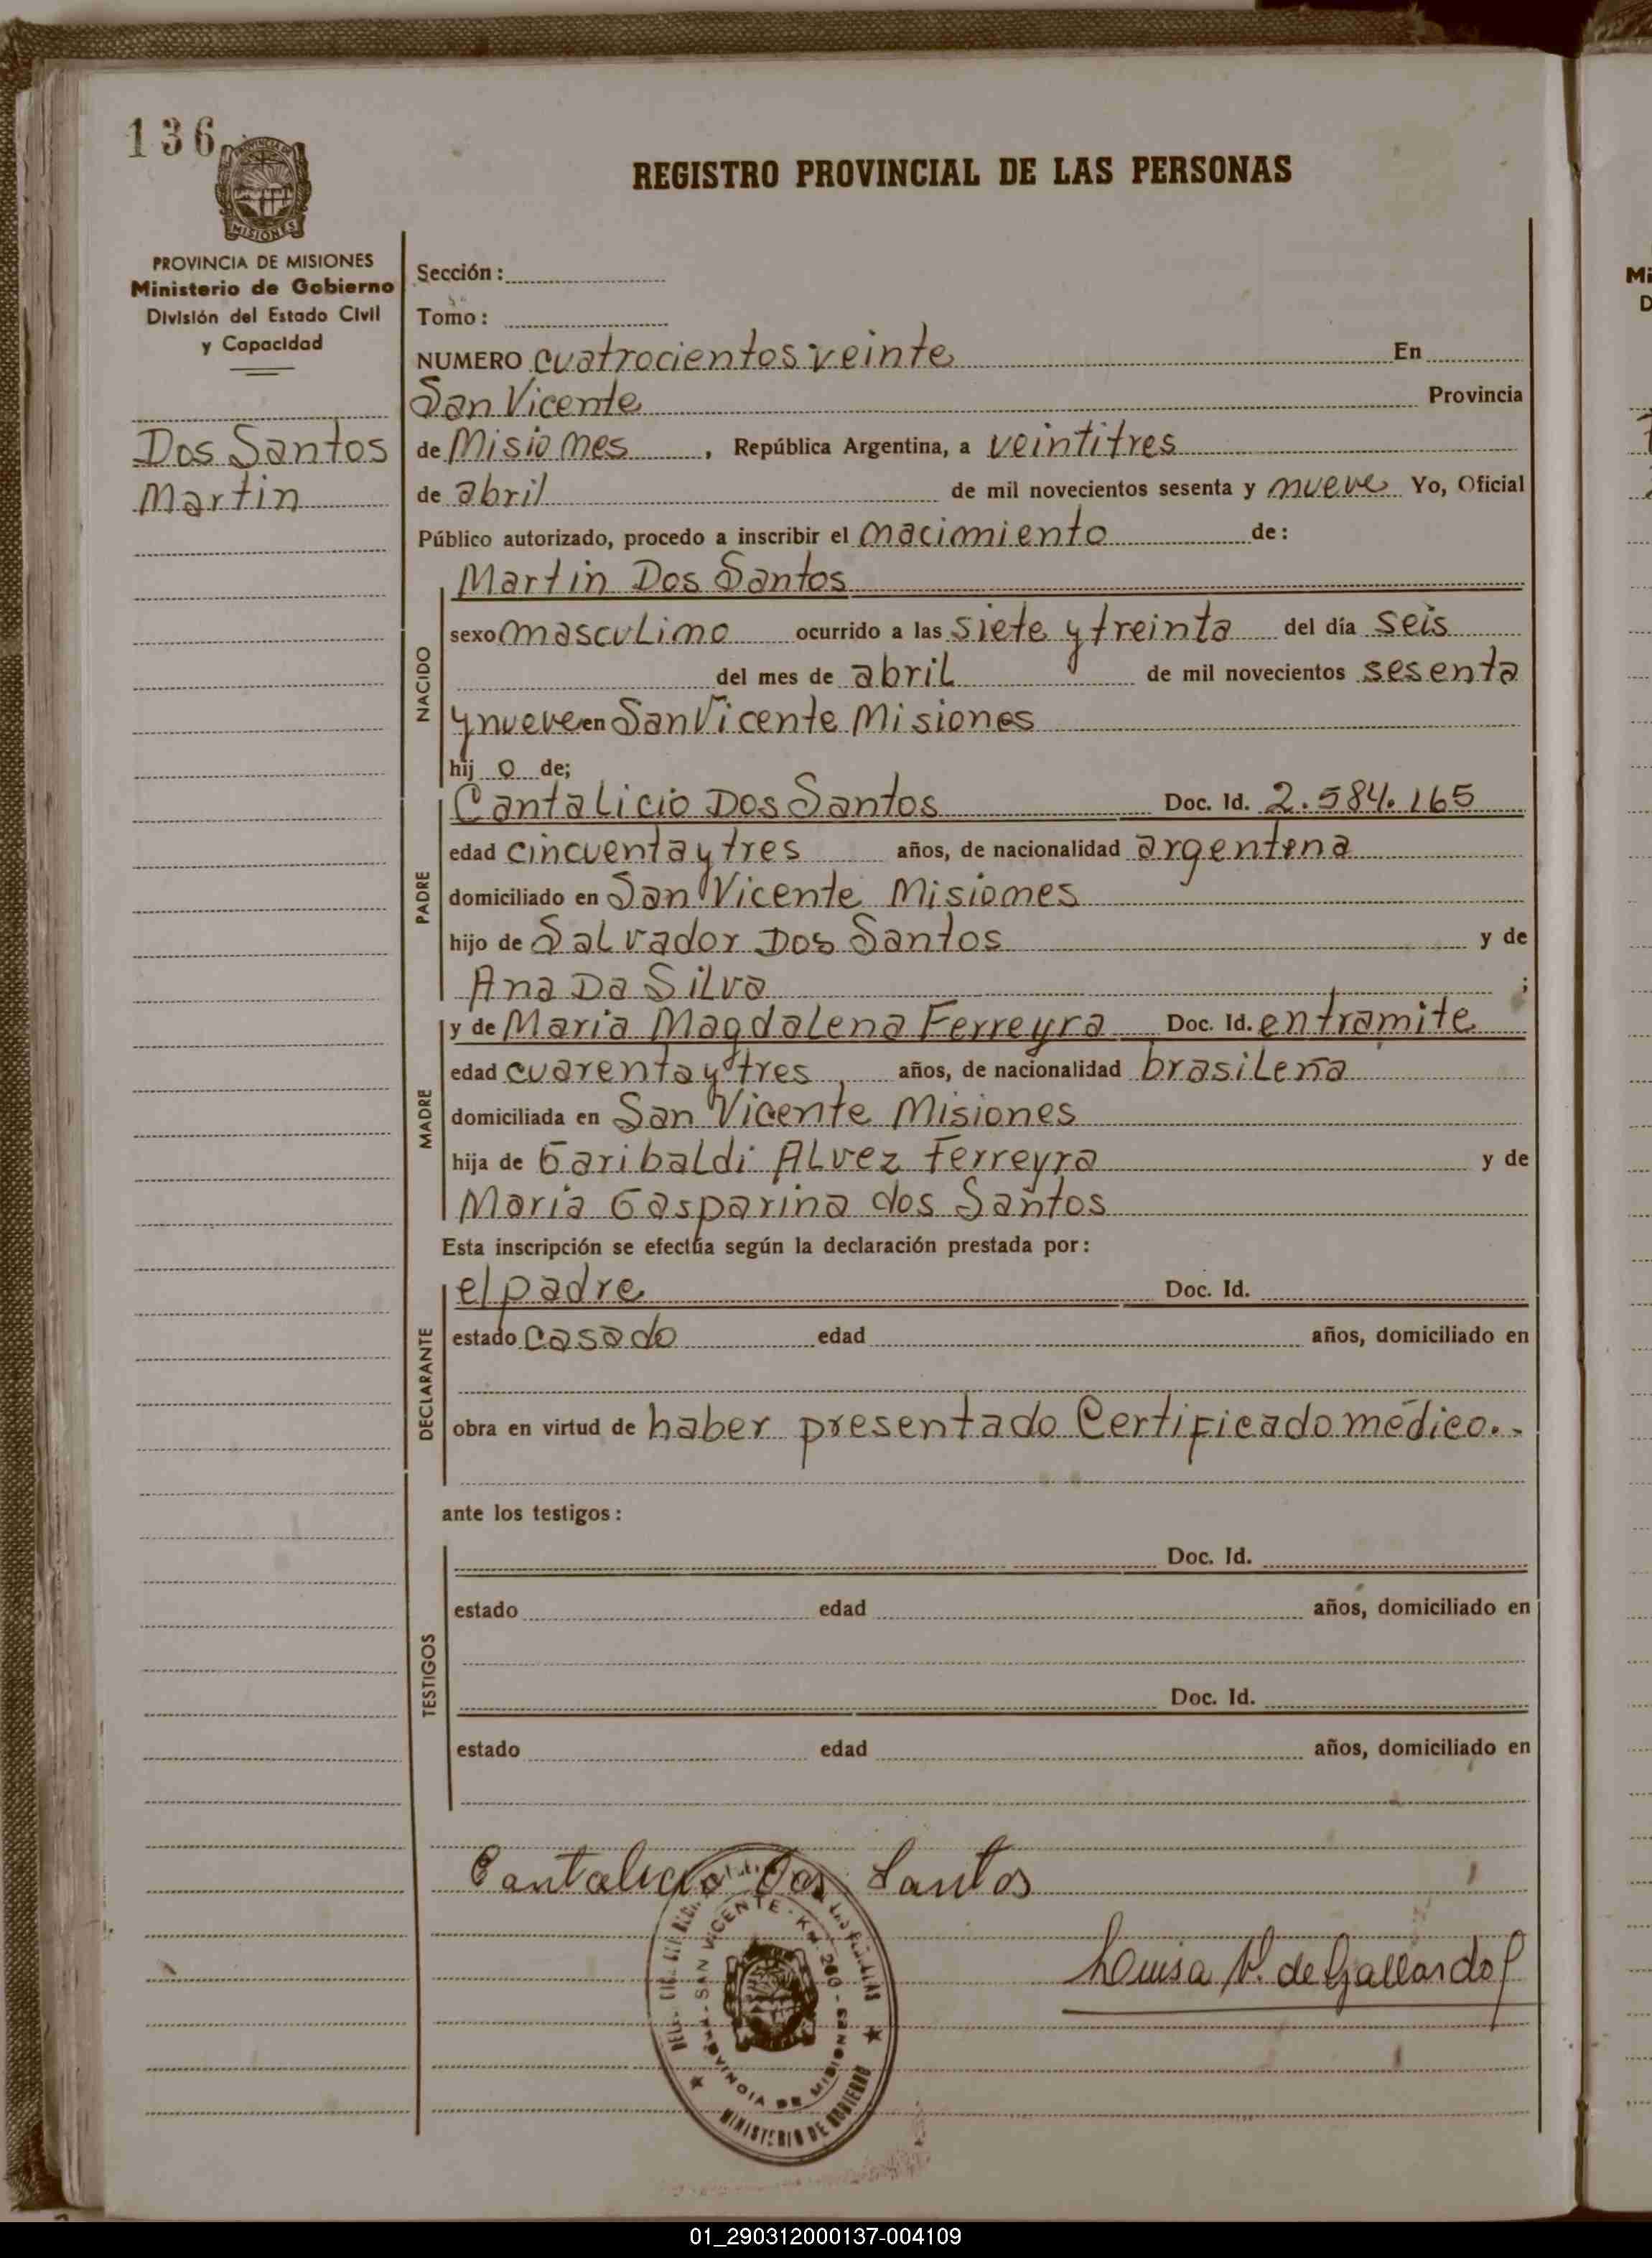 136
PROVINCIA DE MISIONES
Ministerio de Gobierno
División del Estado Civil
y Capacidad
Dos Santos
Martin
REGISTRO PROVINCIAL DE LAS PERSONAS
Sección:
Tomo:
NUMERO cuatrocientos veinte En
San Vicente Provincia
de Misiones, República Argentina, a veintitres
de abril de mil novecientos sesenta y nueve Yo, Oficial
Público autorizado, procedo a inscribir el nacimiento de:
NACIDO
Martin Dos Santos
sexo masculino ocurrido a las siete y treinta del día seis
del mes de abril de mil novecientos sesenta
y nueve en San Vicente Misiones
hij o de;
PADRE
Cantalicio Dos Santos Doc. Id. 2.584.165
edad cincuenta y tres años, de nacionalidad argentina
domiciliado en San Vicente Misiones
hijo de Salvador Dos Santos y de
Ana Da Silva ;
MADRE
y de Maria Magdalena Ferreyra Doc. Id. en tramite
edad cuarenta y tres años, de nacionalidad brasileña
domiciliada en San Vicente Misiones
hija de Garibaldi Alvez Ferreyra y de
Maria Gasparina dos Santos
Esta inscripción se efectúa según la declaración prestada por:
DECLARANTE
el padre Doc. Id.
estado casado edad años, domiciliado en
obra en virtud de haber presentado Certificado médico.-
ante los testigos:
TESTIGOS
Doc. Id.
estado edad años, domiciliado en
Doc. Id.
estado edad años, domiciliado en
Cantalicio Dos Santos
Luisa V. de Gallardo
SAN VICENTE - KM. 260
PROVINCIA DE MISIONES
MINISTERIO DE GOBIERNO
01_290312000137-004109